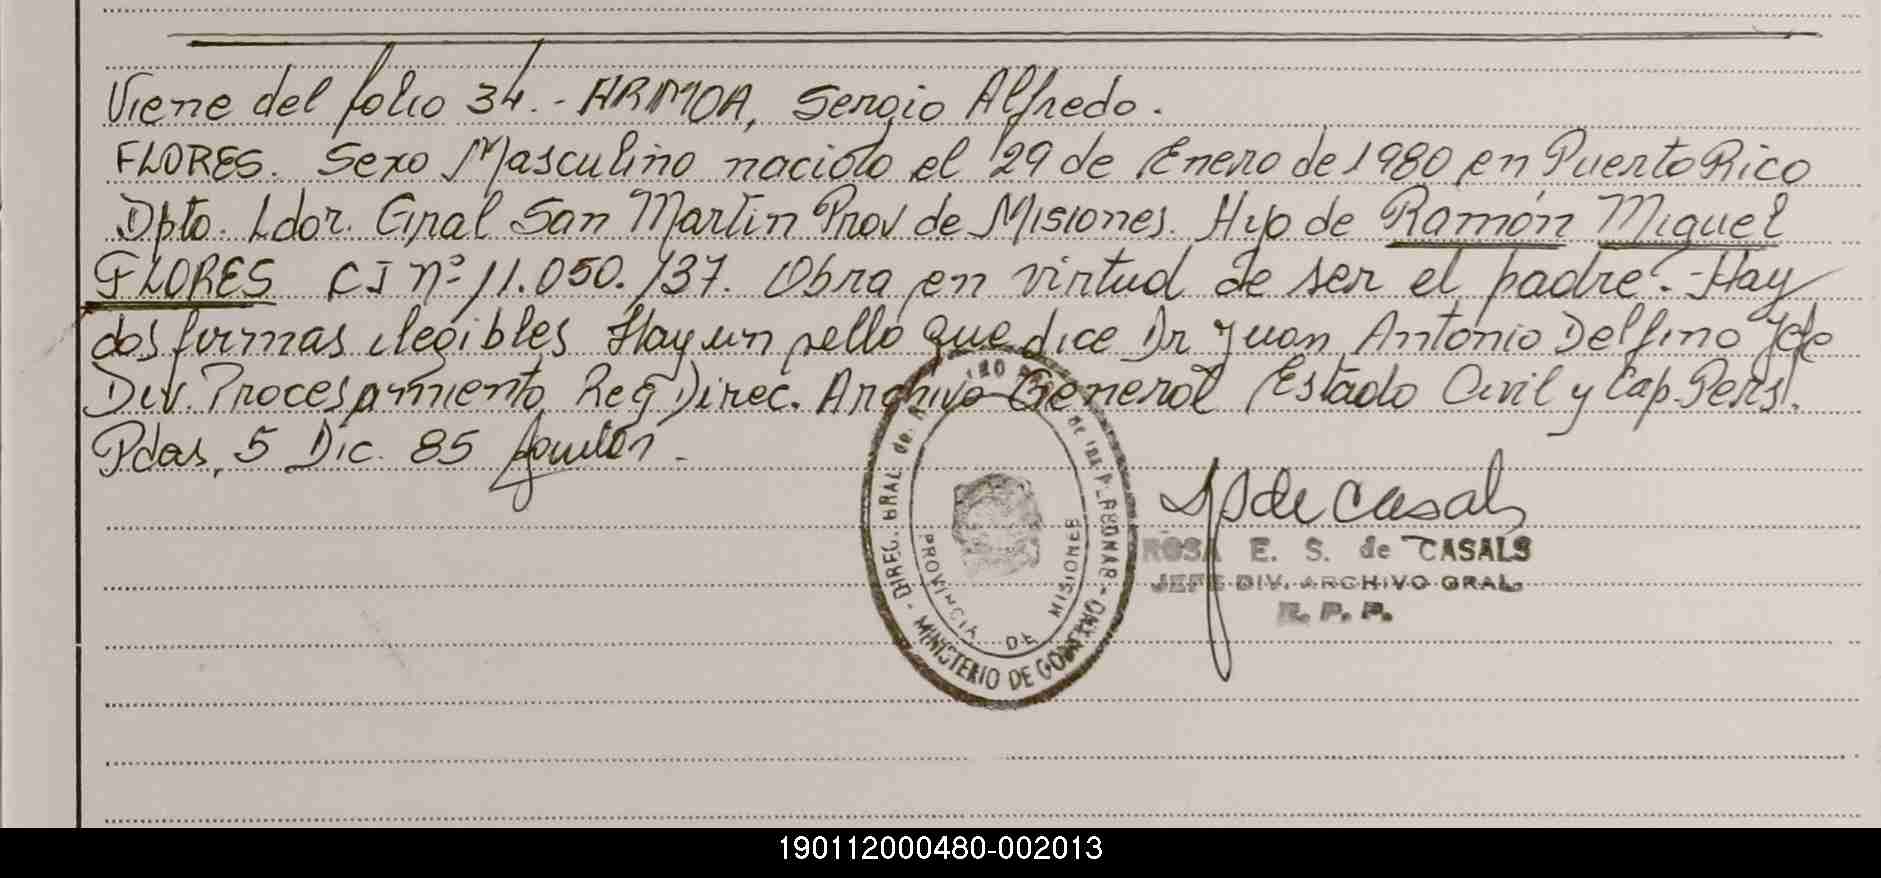 Viene del folio 34.- ARMOA, Sergio Alfredo.
FLORES. Sexo Masculino nacido el 29 de Enero de 1980 en Puerto Rico
Dpto. Ldor. Gral San Martin Prov de Misiones. Hijo de Ramón Miguel
FLORES CI nº 11.050.137. Obra en virtud de ser el padre.- Hay
dos firmas ilegibles Hay un sello que dice Dr Juan Antonio Delfino Jefe
Div. Procesamiento Reg Direc. Archivo General Estado Civil y Cap. Pers.
Pdas, 5 Dic. 85
de Casals
ROSA E. S. de CASALS
JEFE DIV. ARCHIVO GRAL.
R. P. P.
DIREC. GRAL de
de las PERSONAS
MINISTERIO DE GOBIERNO
PROVINCIA DE MISIONES
190112000480-002013